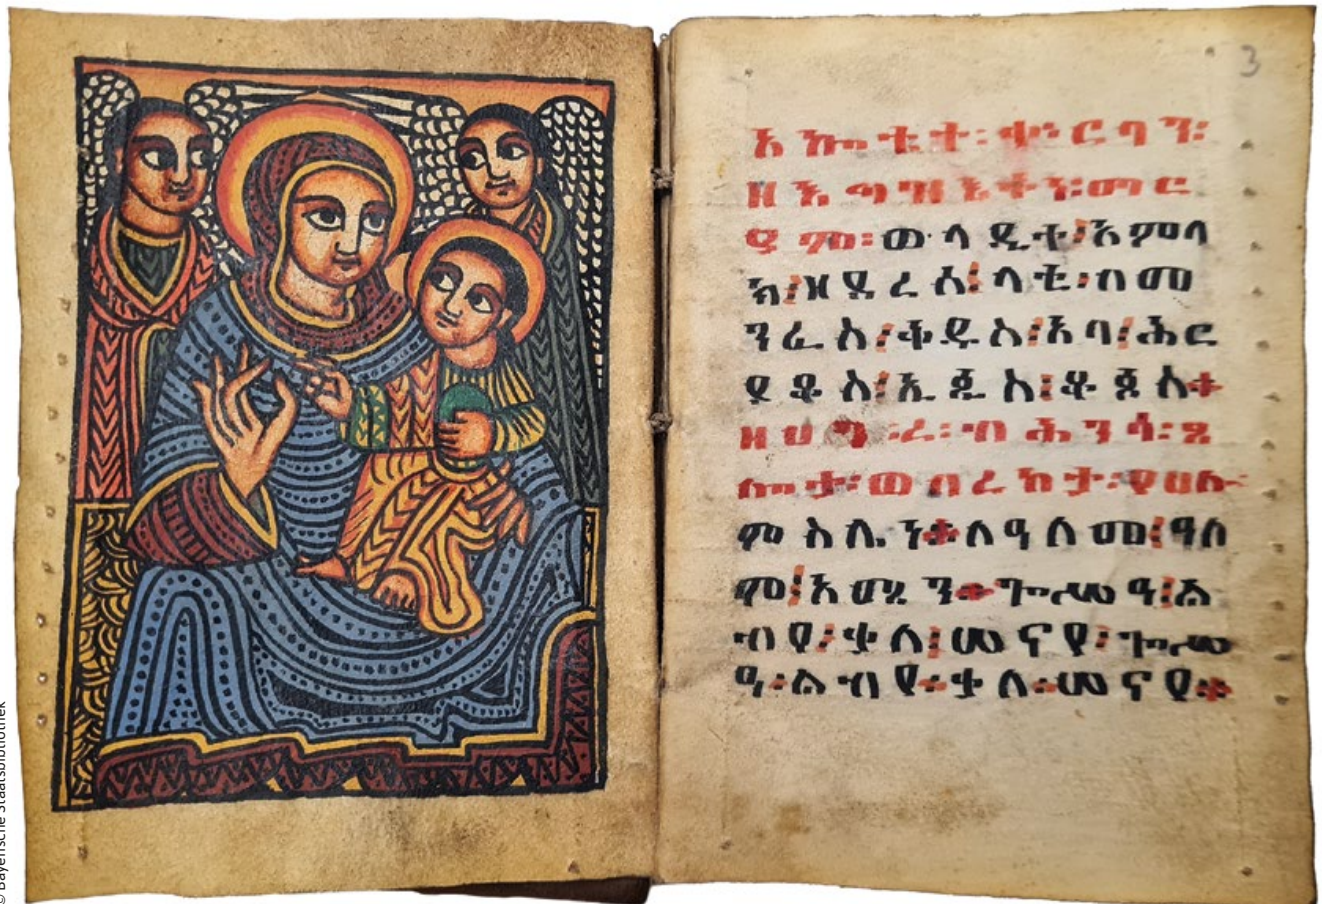 አኰቴተ፡ቍርባን፡
ዘእግዝእትነ፡ማር
ያም፡ወላዲተ፡አምላ
ክ፡ዘደረሰ፡ላቲ፡በመ
ንፈስ፡ቅዱስ፡አባ፡ሕር
ያቆስ፡ኤጲስ፡ቆጶስ።
ዘሀገረ፡ብሕንሳ፡ጸ
ሎታ፡ወበረከታ፡የሀሉ
ምስሌነ።ለዓለመ፡ዓለ
ም፡አሜን።ጐሥዓ፡ል
ብየ፡ቃለ፡ሠናየ፡ጐሥ
ዓ፡ልብየ፡ቃለ፡ሠናየ።
3
© Bayerische Staatsbibliothek